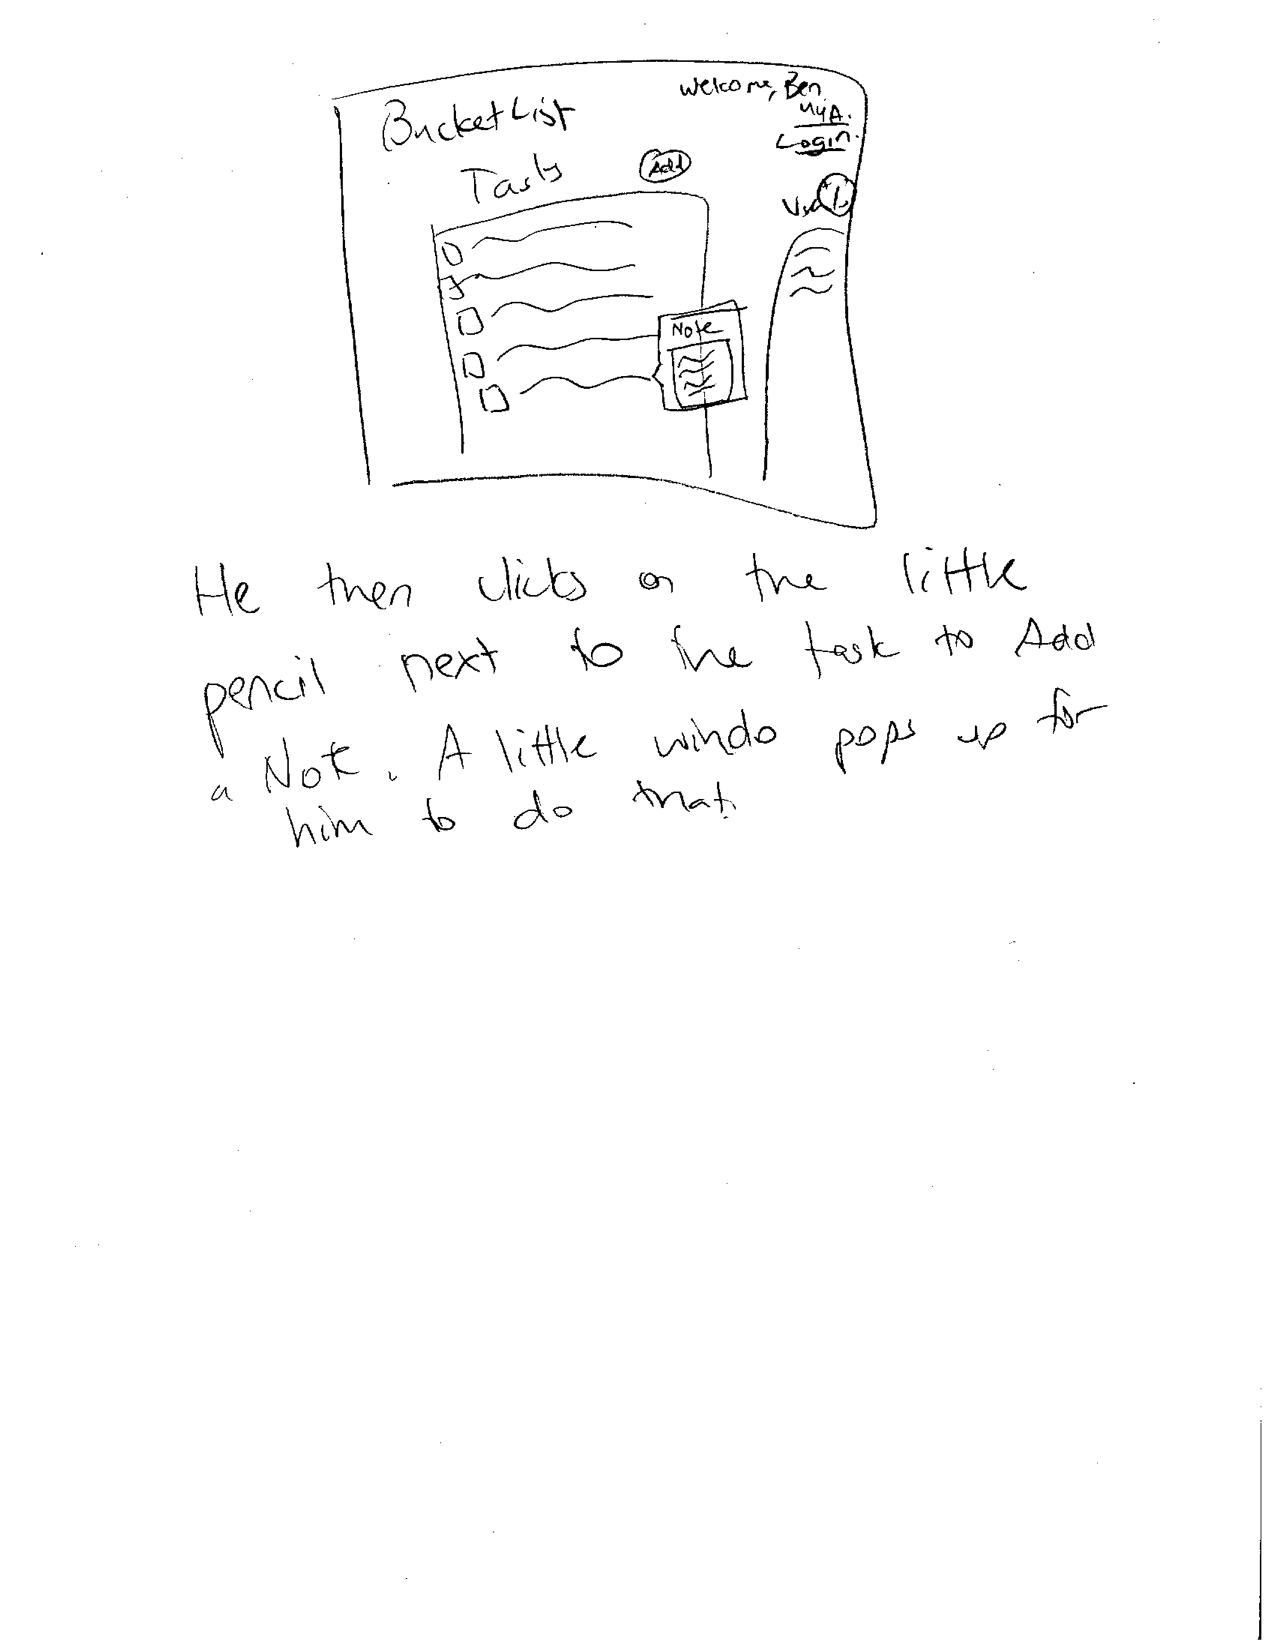 Welcome, Ben
BucketList
MyA.
Login.
Tasks
Add
Note
He then clicks on the little
pencil next to the task to Add
a Note. A little windo pops up for
him to do that.